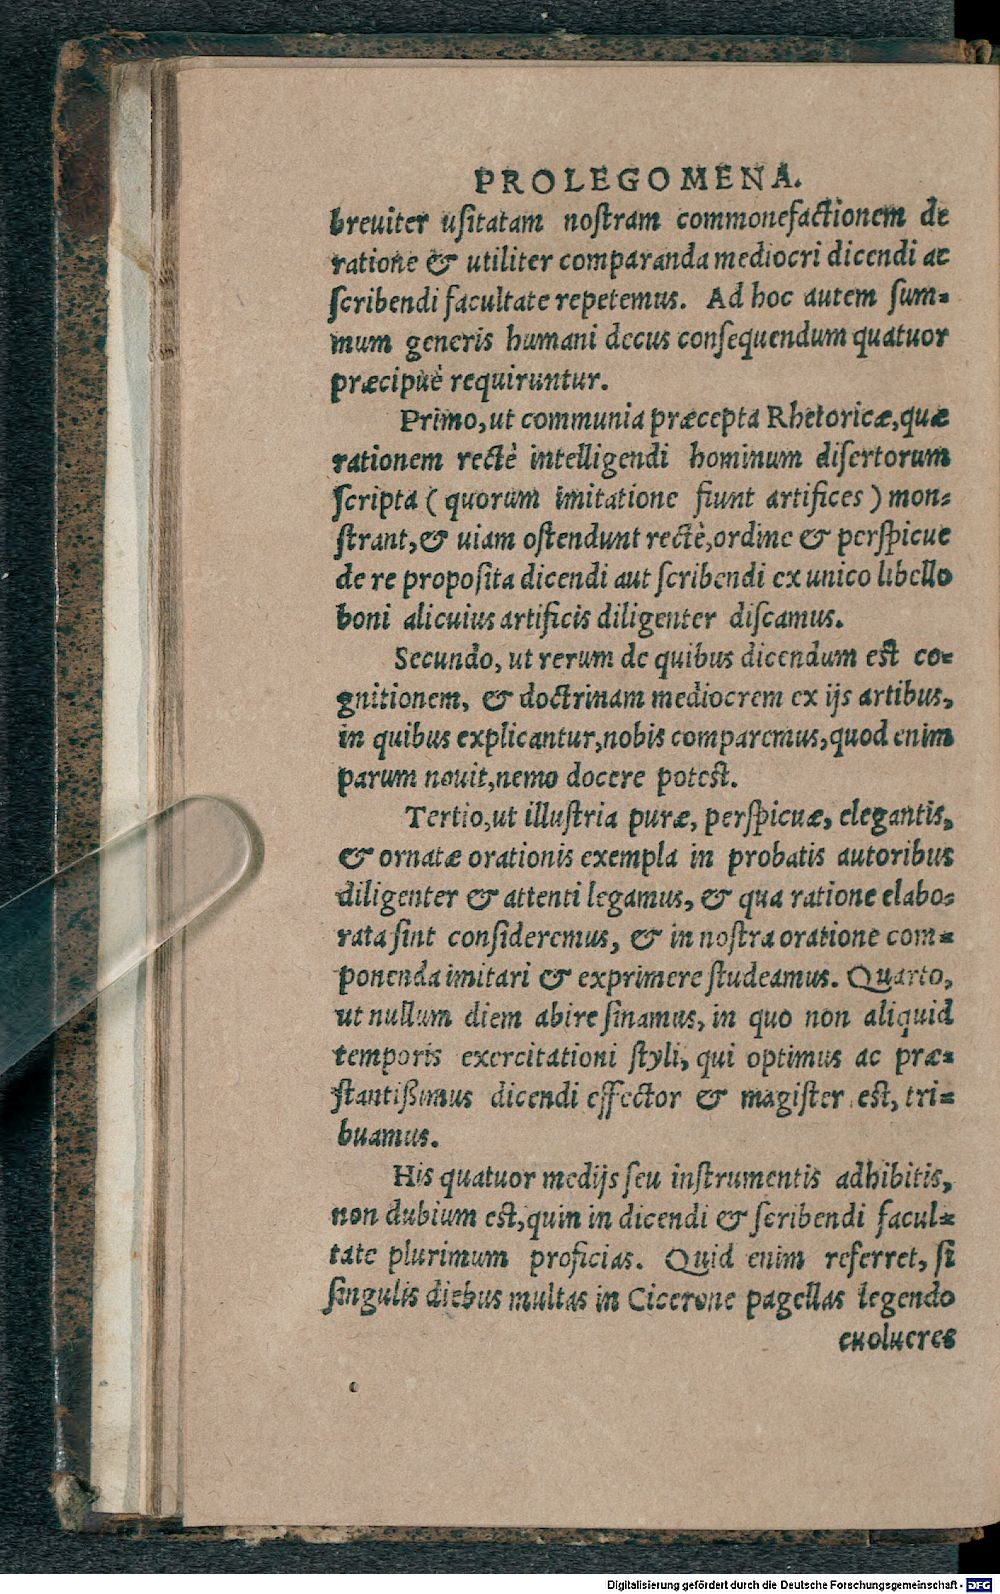 PROLEGOMENA.
breuiter uſitatam noſtram commonefactionem de
ratione & utiliter comparanda mediocri dicendi ac
ſcribendi facultate repetemus. Ad hoc autem ſum-
mum generis humani decus conſequendum quatuor
præcipuè requiruntur.
Primo, ut communia præcepta Rhetoricæ, quæ
rationem rectè intelligendi hominum diſertorum
ſcripta ( quorum imitatione fiunt artifices ) mon-
ſtrant, & uiam oſtendunt rectè, ordine & perſpicue
de re propoſita dicendi aut ſcribendi ex unico libello
boni alicuius artificis diligenter diſcamus.
Secundo, ut rerum de quibus dicendum eſt co-
gnitionem, & doctrinam mediocrem ex ijs artibus,
in quibus explicantur, nobis comparemus, quod enim
parum nouit, nemo docere poteſt.
Tertio, ut illuſtria puræ, perſpicuæ, elegantis,
& ornatæ orationis exempla in probatis autoribus
diligenter & attenti legamus, & qua ratione elabo-
rata ſint conſideremus, & in noſtra oratione com-
ponenda imitari & exprimere ſtudeamus. Quarto,
ut nullum diem abire ſinamus, in quo non aliquid
temporis exercitationi ſtyli, qui optimus ac præ-
ſtantißimus dicendi effector & magiſter eſt, tri-
buamus.
His quatuor medijs ſeu inſtrumentis adhibitis,
non dubium eſt, quin in dicendi & ſcribendi facul-
tate plurimum proficias. Quid enim referret, ſi
ſingulis diebus multas in Cicerone pagellas legendo
euolueres
Digitalisierung gefördert durch die Deutsche Forschungsgemeinschaft - DFG